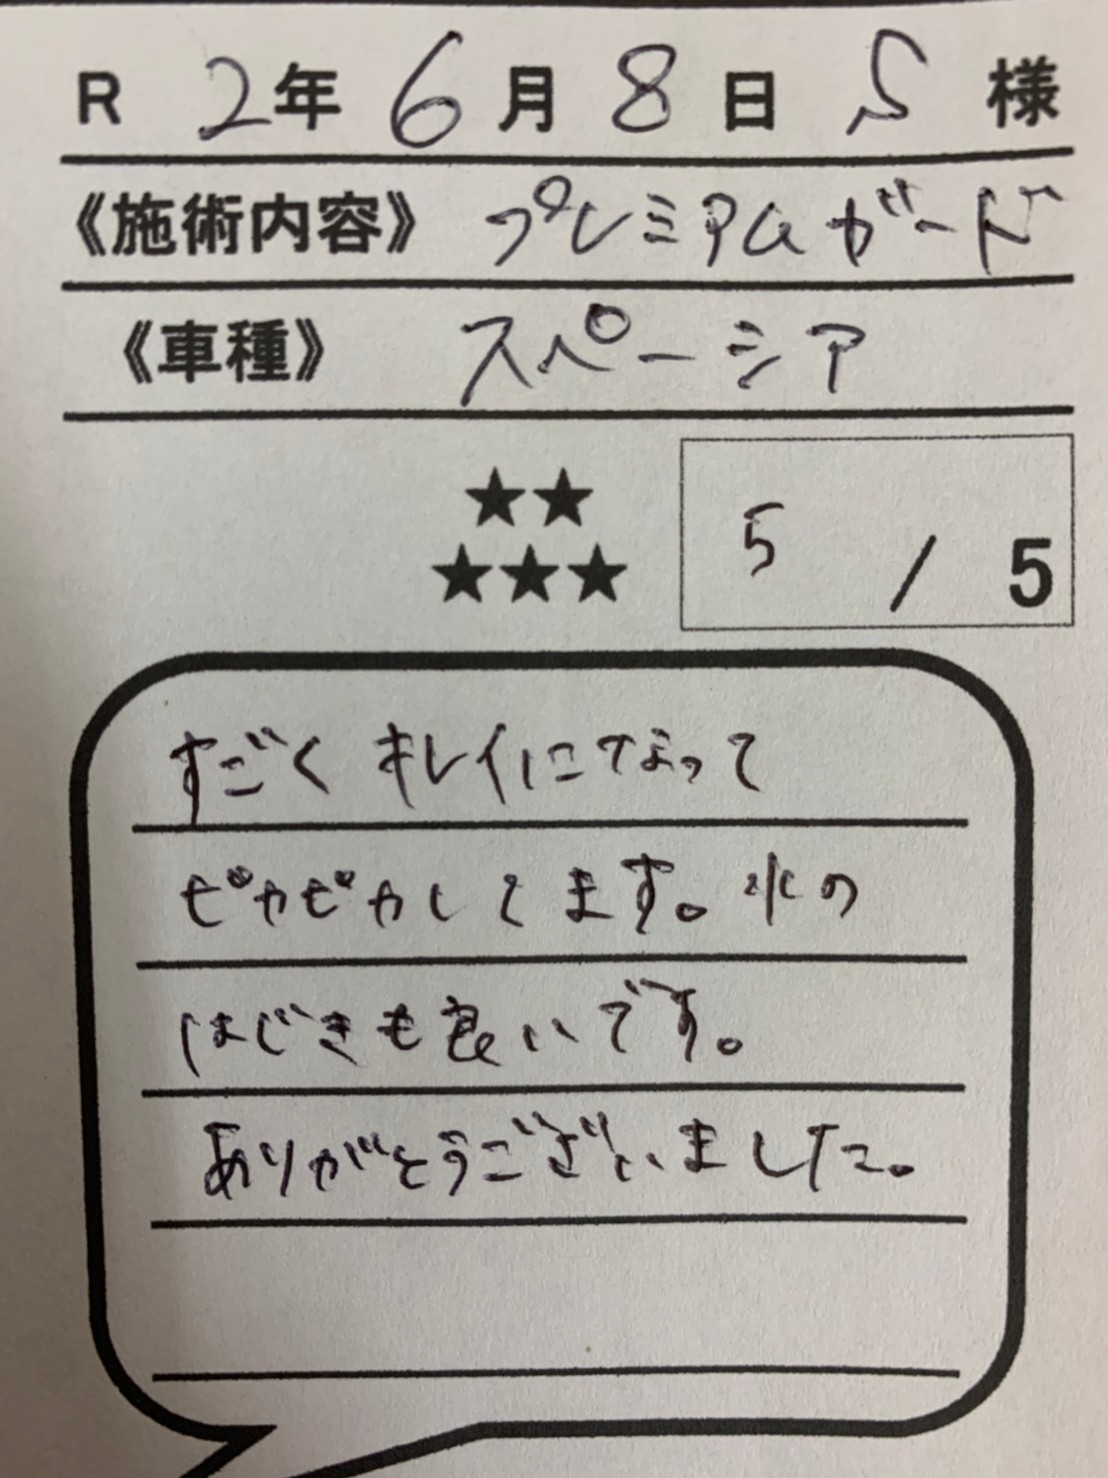 R 2年 6月 8日 S 様
《施術内容》 プレミアムガード
《車種》 スペーシア
★★
★★★
5 / 5
すごく キレイになって
ピカピカしてます。水の
はじきも良いです。
ありがとうございました。